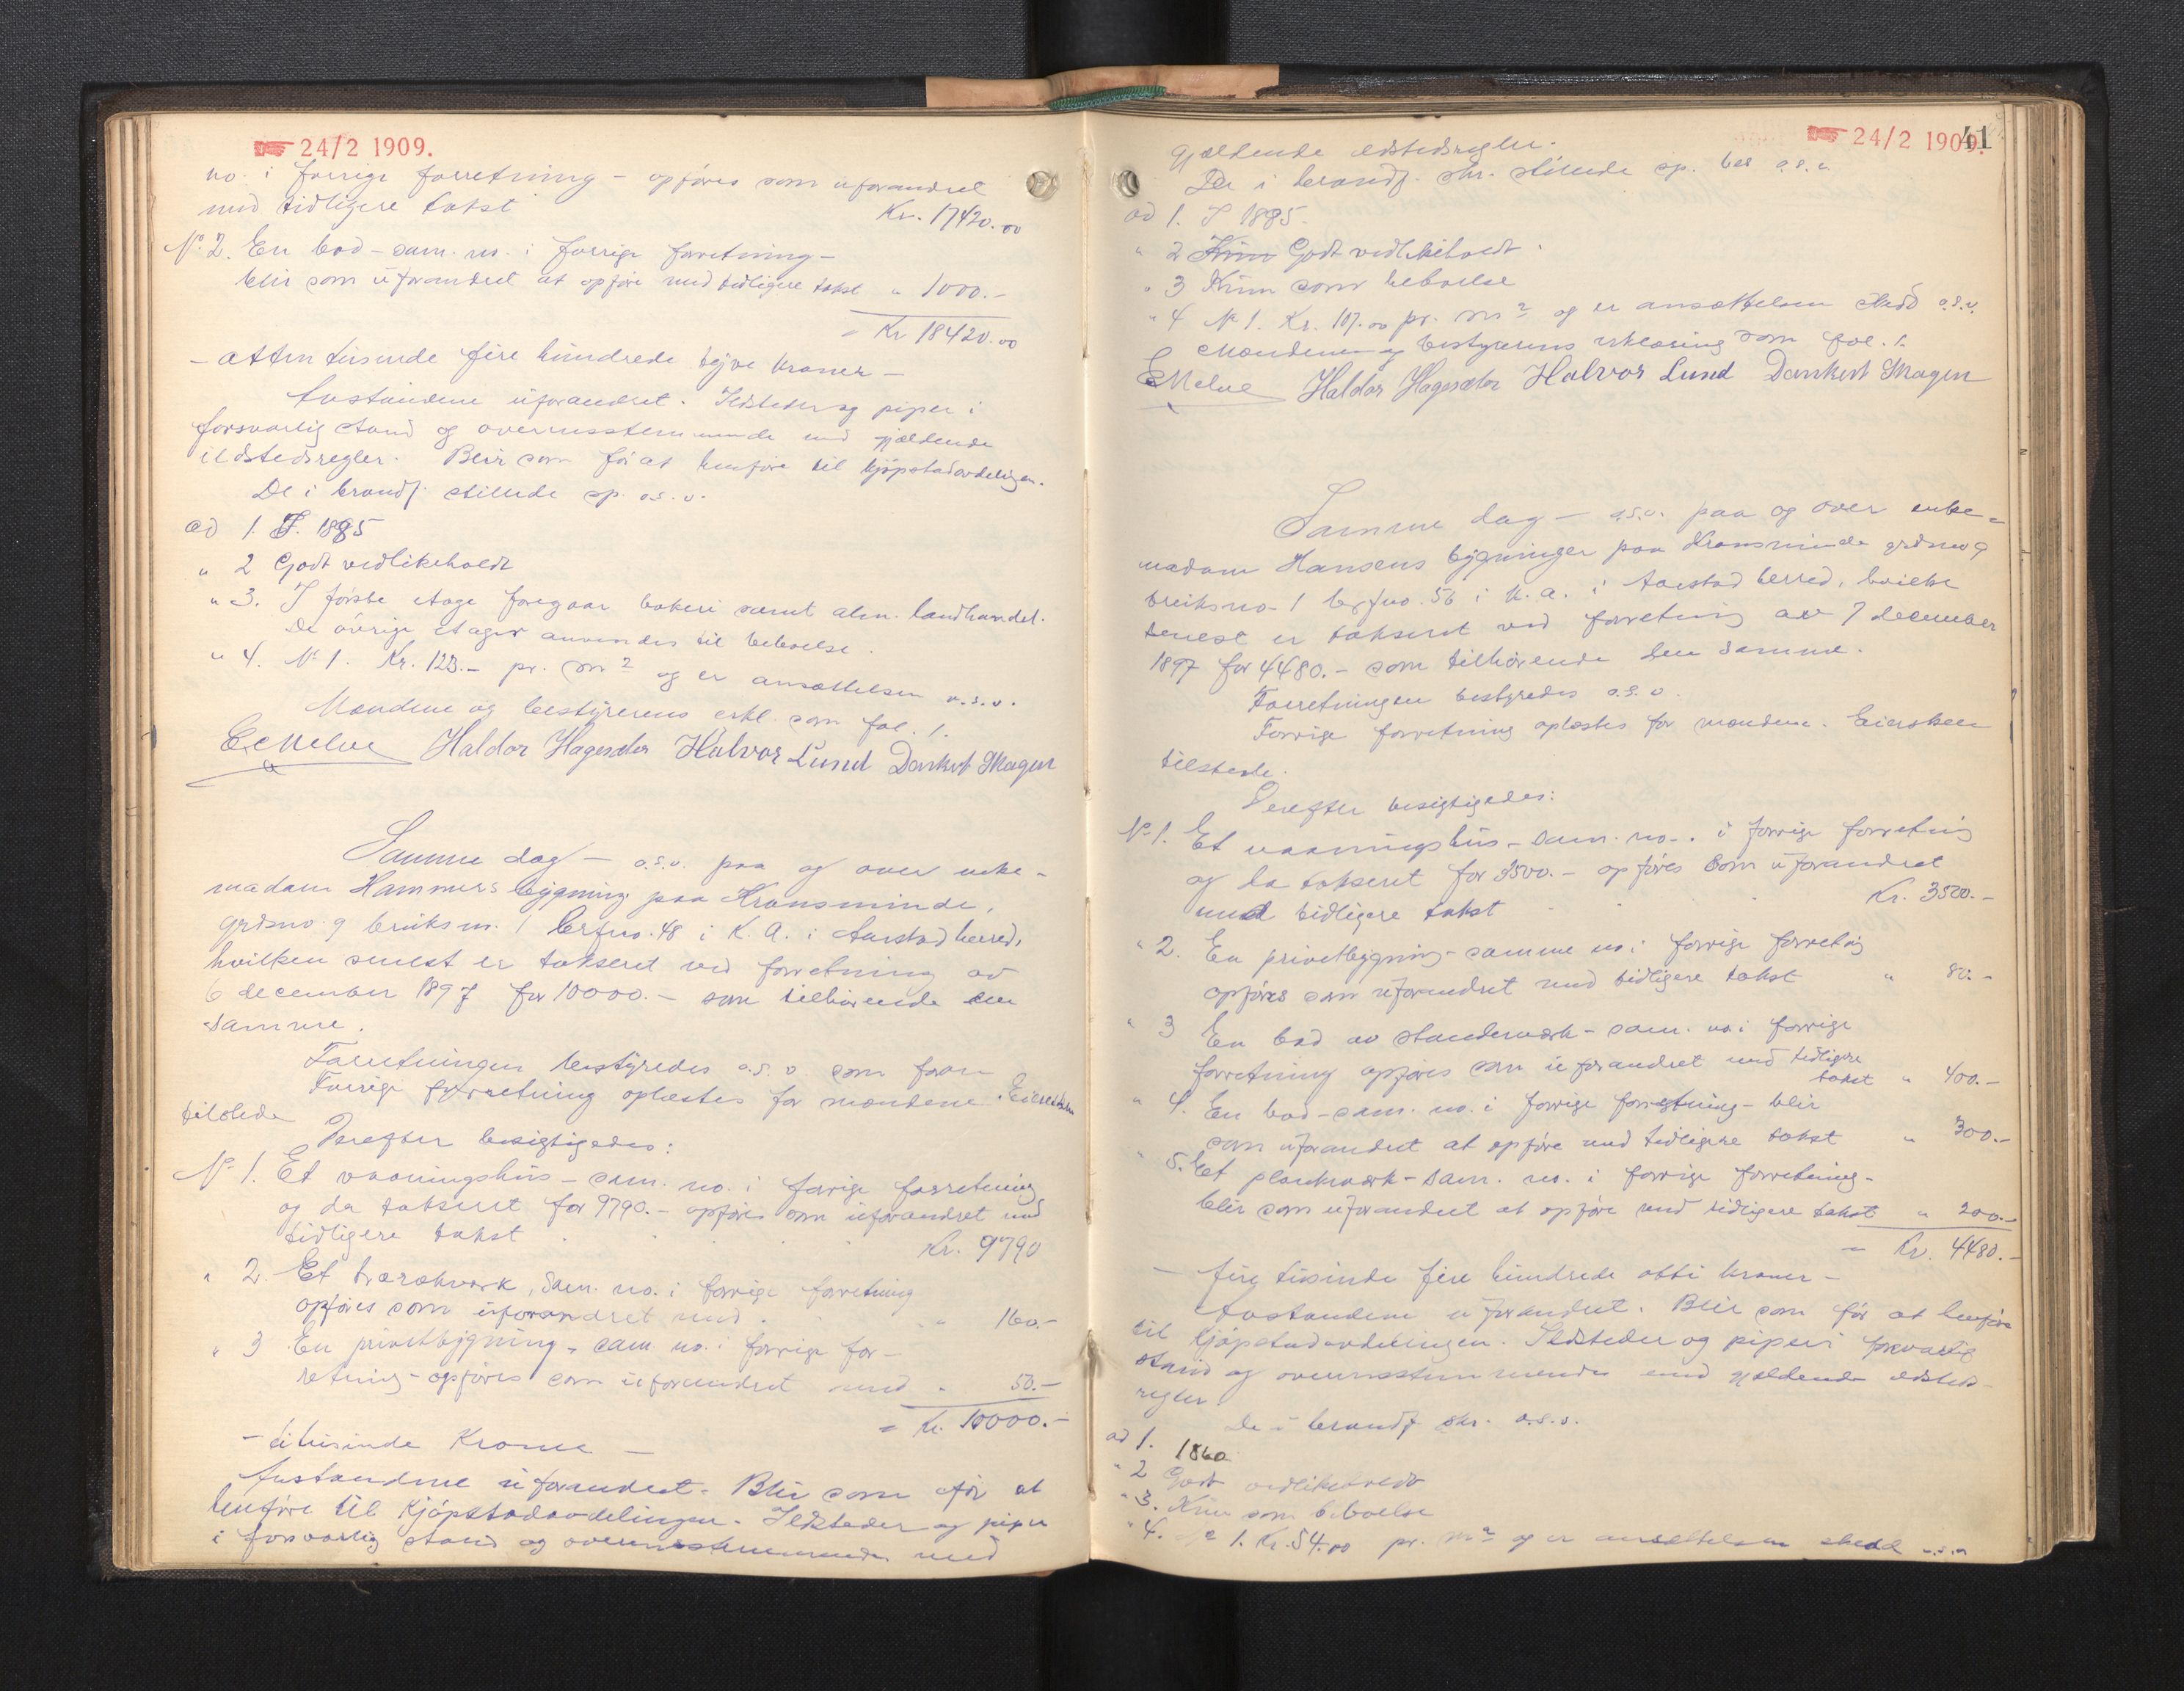 24/2 1909.
no. i forrige forretning – opføres som uforandret
med tidligere takst Kr. 17420.00
No. 2. En bod – sam. no. i forrige forretning –
blir som uforandret at opføre med tidligere takst " 1000.–
= Kr 18420.00
– atten tusinde fire hundrede tyve kroner –
Avstandene uforandret. Ildsteder og piper i
forsvarlig stand og overensstemmende med gjældende
ildstedsregler. Blir som før at henføre til kjøpstadavdelingen.
De i brandf. stillede sp. o.s.v.
ad 1. I. 1885
" 2 Godt vedlikeholdt
" 3. I første etage foregaar bakeri samt alm. landhandel.
De øvrige etager anvendes til beboelse.
" 4. No 1. Kr. 123.– pr. m2 og er ansættelsen o.s.v.
Mændene og bestyrerens erkl. som fol. 1.
E Melve Haldor Hagesæter Halvor Lund Dankert Skagen
Samme dag – o.s.v. paa og over enke-
madam Hammers bygning paa Kransminde,
grdsno. 9 bruksno. 1 brfno. 48 i K. A. i Aarstad herred,
hvilken senest er takseret ved forretning av
6 december 1897 for 10000.– som tilhørende den
samme.
Forretningen bestyredes o.s.v. som foran
Forrige forretning oplæstes for mændene. Eiersken
tilstede
Derefter besigtigedes:
No 1. Et vaaningshus – sam. no. i forrige forretning
og da takseret for 9790.– opføres som uforandret med
tidligere takst Kr. 9790
" 2. Et tværækverk, sam. no. i forrige forretning
opføres som uforandret med " 160.–
" 3 En privetbygning – sam. no. i forrige for-
retning – opføres som uforandret med " 50.–
= Kr. 10000.–
– ti tusinde Kroner –
Avstandene uforandret. Blir som før at
henføre til Kjøpstadavdelingen. Ildsteder og piper
i forsvarlig stand og overensstemmende med
24/2 1909.
41
gjældende ildstedsregler.
De i brandf. skr. stillede sp. bes. o.s.v.
ad 1. I 1885.
" 2 Kun Godt vedlikeholdt.
" 3 Kun som beboelse
" 4 No 1. Kr. 107.00 pr. m2 og er ansættelsen skedd o.s.v.
Mændenes og bestyrerens erklæring som fol. 1.
E Melve Haldor Hagesæter Halvor Lund Dankert Skagen
Samme dag – o.s.v. paa og over enke-
madam Hansens bygninger paa Kransminde grdsno 9
bruksno. 1 brfno. 56 i K. A. i Aarstad herred, hvilke
senest er takseret ved forretning av 7 december
1897 for 4480.– som tilhørende den samme.
Forretningen bestyredes o.s.v.
Forrige forretning oplæstes for mændene. Eiersken
tilstede.
Derefter besigtigedes:
No 1. Et vaaningshus – sam. no. i forrige forretning
og da takseret for 3500.– opføres som uforandret
med tidligere takst Kr. 3500.–
" 2. En privetbygning – samme no i forrige forretning
opføres som uforandret med tidligere takst " 80.–
" 3 En bod av standerværk – sam. no i forrige
forretning opføres som uforandret med tidligere
takst " 400.–
" 4. En bod – sam. no. i forrige forretning – blir
som uforandret at opføre med tidligere takst " 300.–
" 5. Et plankværk – sam. no. i forrige forretning –
blir som uforandret at opføre med tidligere takst " 200.–
= Kr. 4480.–
– fire tusinde fire hundrede otti kroner –
Avstandene uforandret. Blir som før at henføre
til kjøpstadavdelingen. Ildsteder og piper i forsvarlig
stand og overensstemmende med gjældende ildsteds-
regler.
De i brandf. skr. o.s.v.
ad 1. 1860
" 2 Godt vedlikeholdt
" 3. Kun som beboelse
" 4. No 1. Kr. 54.00 pr. m2 og er ansættelsen skedd o.s.v.